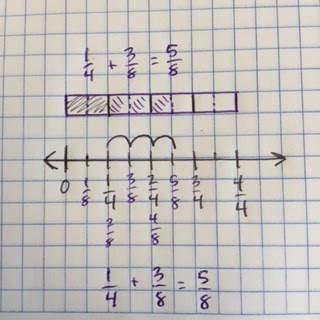 1/4 + 3/8 = 5/8
0 1/8 1/4 3/8 2/4 5/8 3/4 4/4
2/8 4/8
1/4 + 3/8 = 5/8